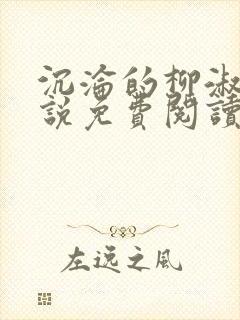 沉淪的柳淑
說免費閱讀
左逸之風